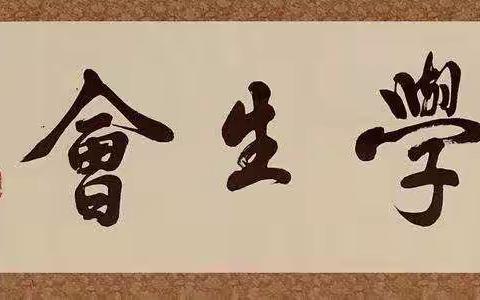 學生會